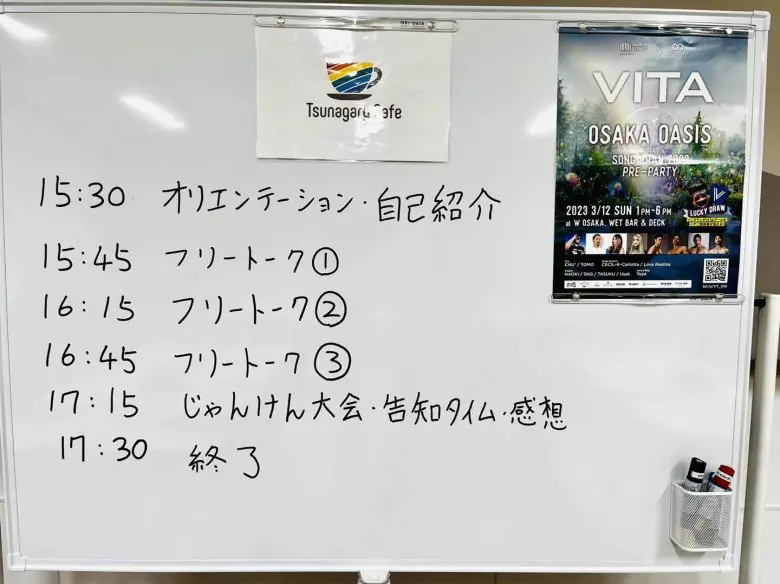 Tsunagaru Cafe
15:30 オリエンテーション・自己紹介
15:45 フリートーク①
16:15 フリートーク②
16:45 フリートーク③
17:15 じゃんけん大会・告知タイム・感想
17:30 終了
VITA
OSAKA OASIS
SONGKRAN 2023
PRE-PARTY
2023 3/12 SUN 1PM-6PM
at W OSAKA, WET BAR & DECK
LUCKY DRAW
CHU* / TOMO
CECIL-K-Carlotta / Love Realize
NAOKI / SHO / TASUKU / Usak